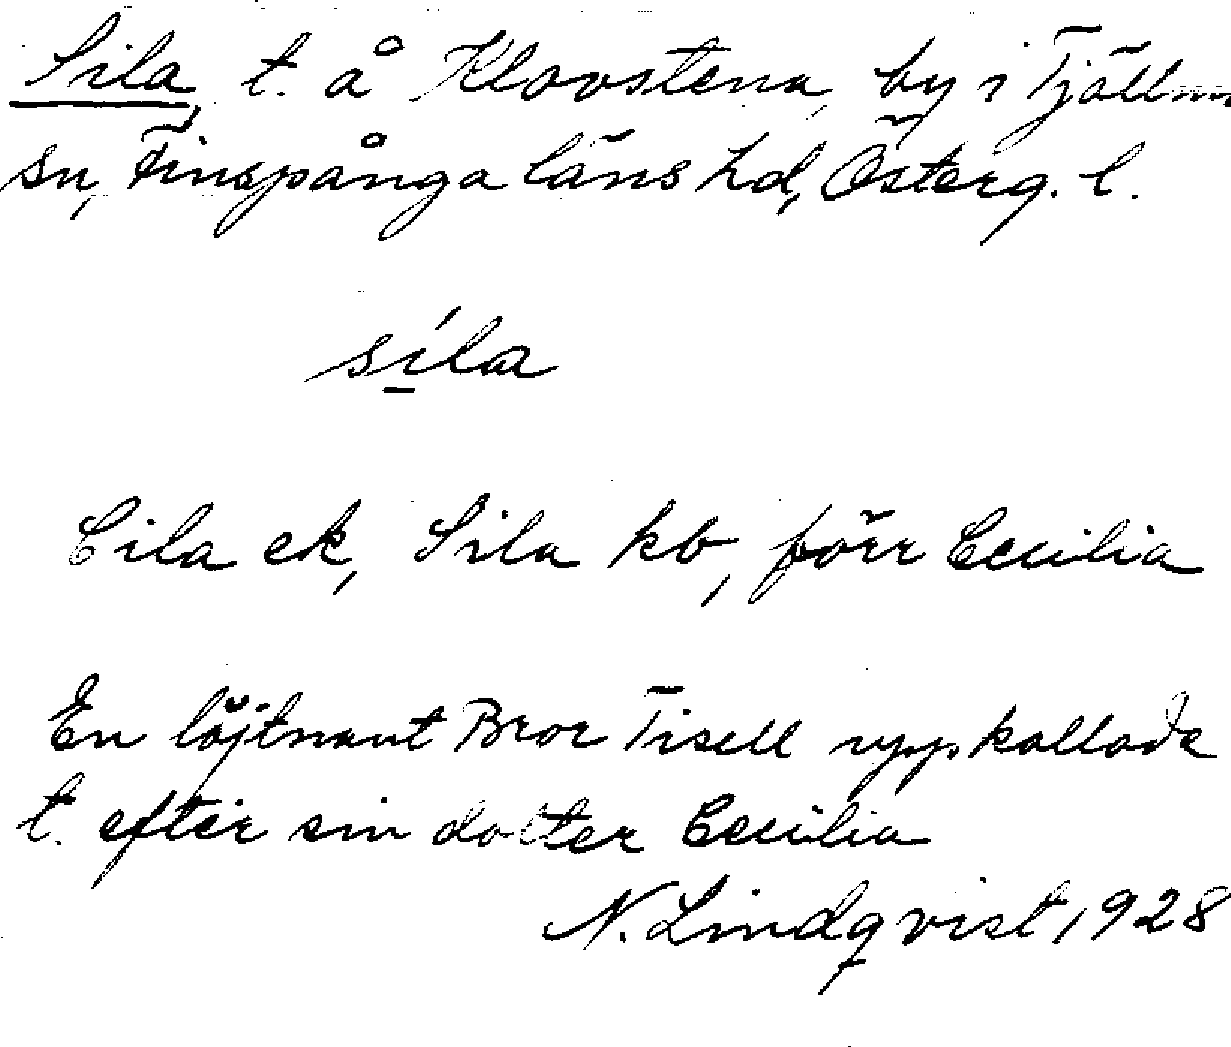 Sila, t. å Klovstena, by i Tjällmo
sn, Finspånga läns hd, Österg. l.
síla
Cila ek, Sila kb, förr Cecilia
En löjtnant Bror Tisell uppkallade
t. efter sin dotter Cecilia
N. Lindqvist, 1928